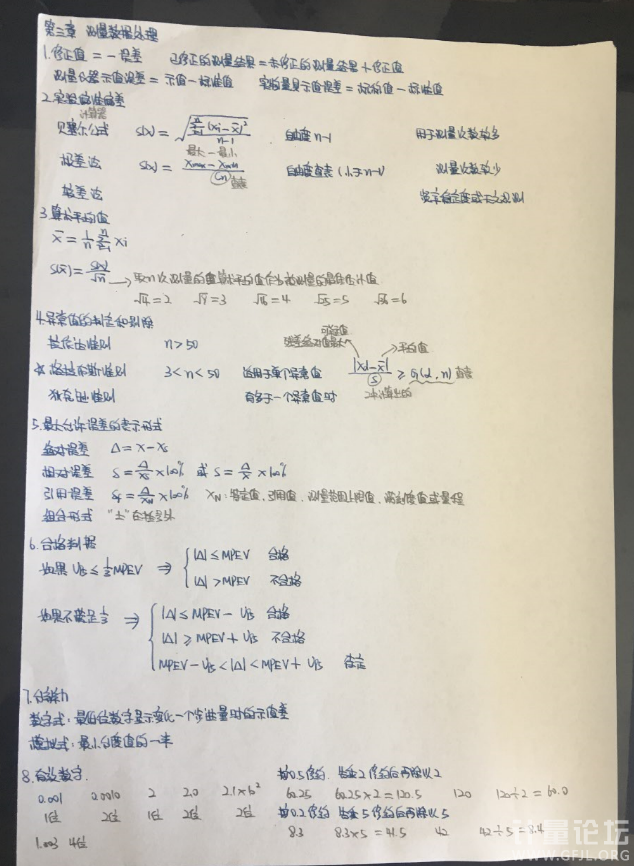 第三章 测量数据处理
1.修正值 = -误差 已修正的测量结果 = 未修正的测量结果 + 修正值
测量仪器示值误差 = 示值 - 标准值 实物量具示值误差 = 标称值 - 标准值
2.实验标准偏差
计算器
贝塞尔公式 S(x) = √(Σ(xi-x̄)²/(n-1)) 自由度 n-1 用于测量次数较多
最大-最小
极差法 S(x) = (Xmax-Xmin)/Cn 查表 自由度查表(小于n-1) 测量次数较少
较差法 频率稳定度或天文观测
3.算术平均值
x̄ = 1/n Σ xi
S(x̄) = S(x)/√n → 取n次测量的算术平均值作为被测量的最佳估计值
√4=2 √9=3 √16=4 √25=5 √36=6
4.异常值的判定和剔除
拉依达准则 n>50 可疑值
残差绝对值最大 平均值
☆格拉布斯准则 3<n<50 适用于单个异常值 |Xd-x̄|/S ≥ G(α,n) 查表
狄克逊准则 有多于一个异常值时 2中计算出的
5.最大允许误差的表示形式
绝对误差 Δ = x-xs
相对误差 δ = Δ/xs ×100% 或 δ = Δ/x ×100%
引用误差 δf = Δ/XN ×100% XN:特定值,引用值,测量范围上限值,满刻度值或量程
组合形式 "±"在括号外
6.合格判据
如果 U95 ≤ 1/3 MPEV ⇒ { |Δ| ≤ MPEV 合格
|Δ| > MPEV 不合格
如果不满足1/3 ⇒ { |Δ| ≤ MPEV - U95 合格
|Δ| ≥ MPEV + U95 不合格
MPEV - U95 < |Δ| < MPEV + U95 待定
7.分辨力
数字式:最低位数字显示变化一个步进量时的示值差
模拟式:最小分度值的一半
8.有效数字. 按0.5修约,先乘2修约后再除以2
0.001 0.0010 2 2.0 2.1×10² 60.25 60.25×2=120.5 120 120÷2=60.0
1位 2位 1位 2位 2位 按0.2修约 先乘5修约后再除以5
1.003 4位 8.3 8.3×5=41.5 42 42÷5=8.4
计量论坛
WWW.GFJL.ORG